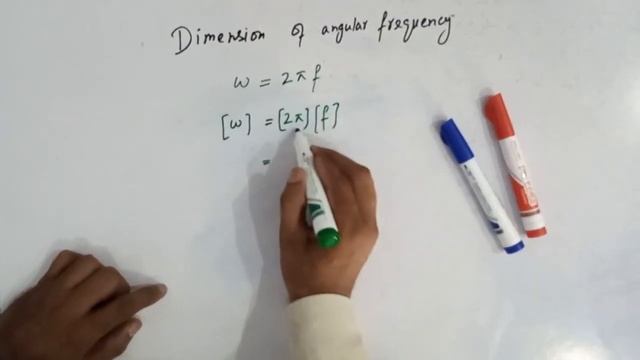 Dimension of angular frequency
ω = 2πf
[ω] = [2π][f]
=